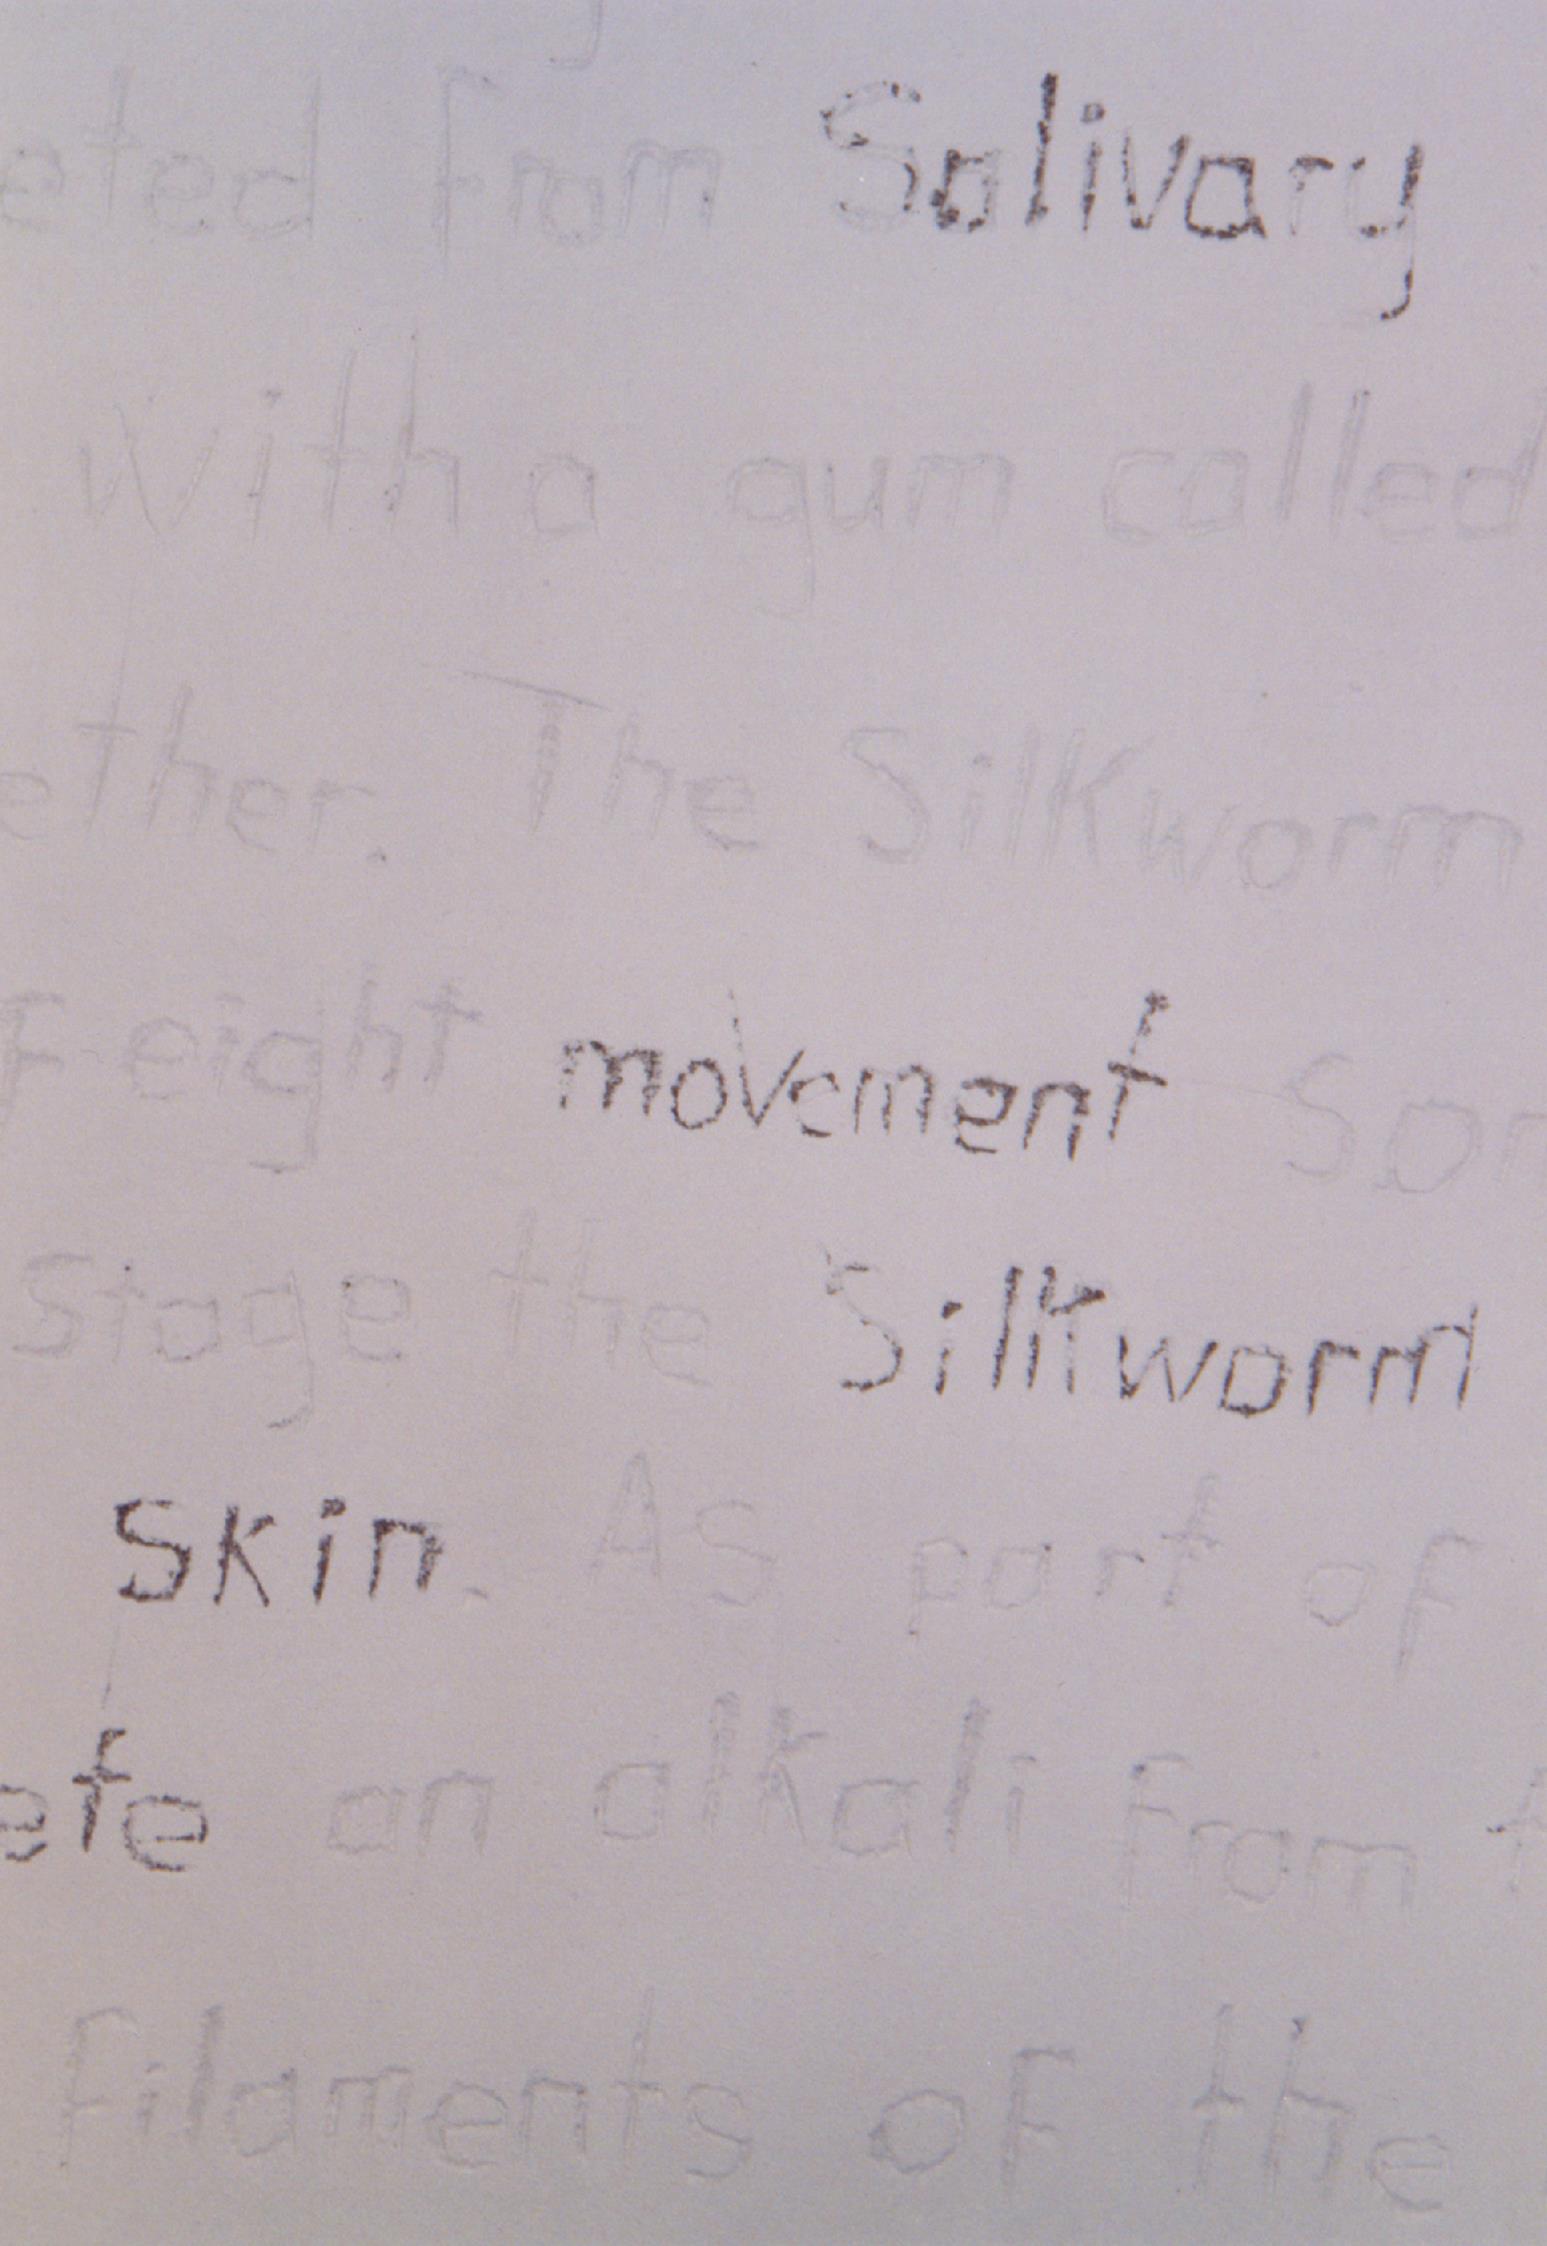 eted from Salivary
with a gum called
ether. The Silkworm
f eight movement Som
Stage the Silkworm
Skin. As part of
ete an alkali from t
filaments of the